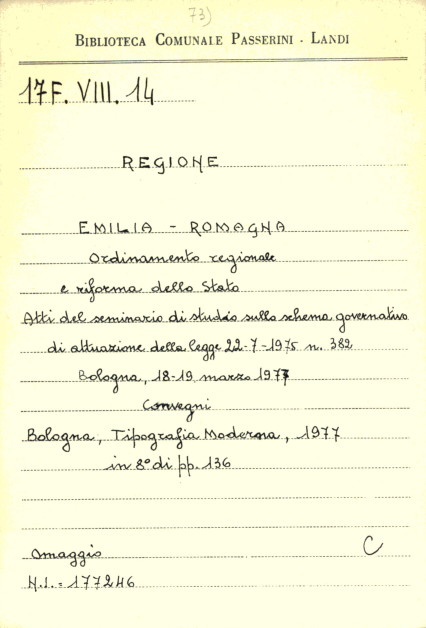 73)
BIBLIOTECA COMUNALE PASSERINI - LANDI
17F. VIII. 14
REGIONE
EMILIA - ROMAGNA
Ordinamento regionale
e riforma dello Stato
Atti del seminario di studio sullo schema governativo
di attuazione della legge 22-7-1975 n. 382
Bologna, 18-19 marzo 1977
Convegni
Bologna, Tipografia Moderna, 1977
in 8° di pp. 136
Omaggio C
N.I.= 177246